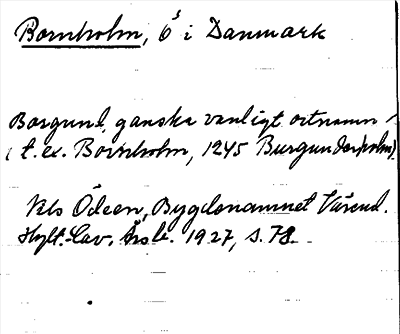 Bornholm, ö i Danmark
Borgund, ganska vanligt ortnamn
(t.ex. Bornholm, 1245 Burgunderholm).
Nils Ödeen, Bygdenamnet Värend.
Hylt.-Cav. Årsb. 1927, s. 78